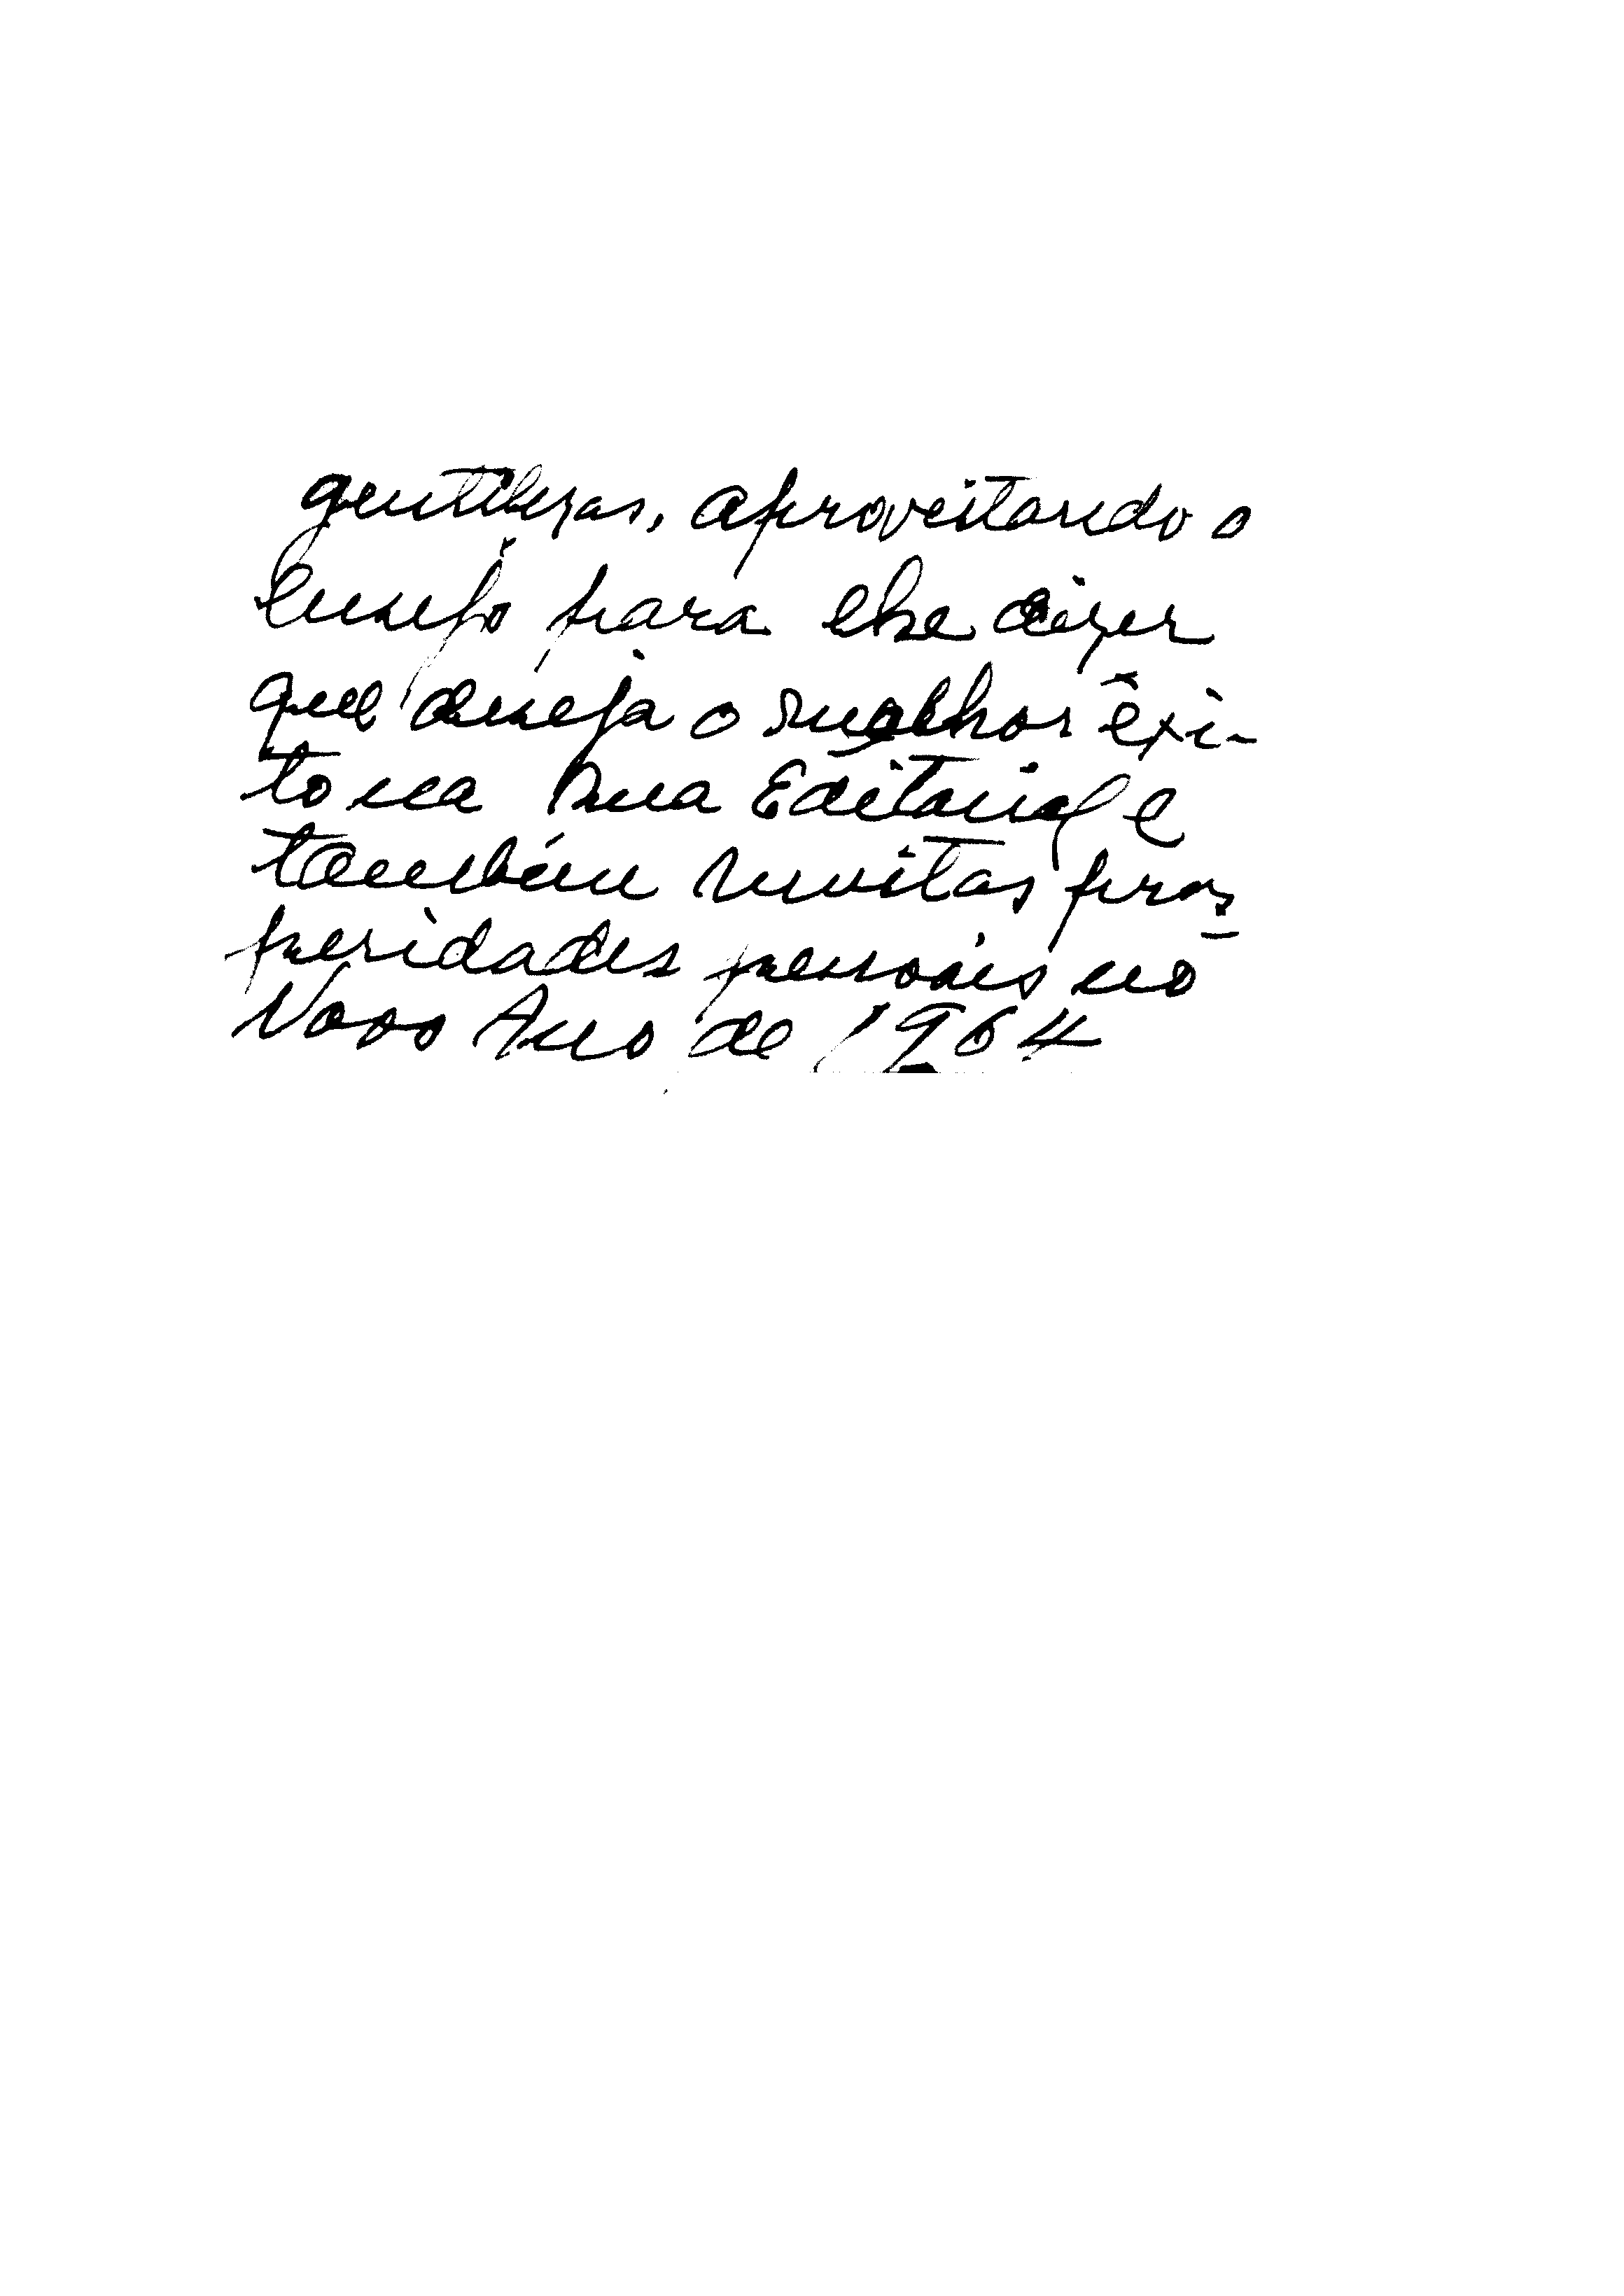 gentilezas, aproveitando o
ensejo para lhe dizer
que deseja o melhor êxi-
to na sua Editorial e
também muitas pros
peridades pessoais no
Novo Ano de 1964